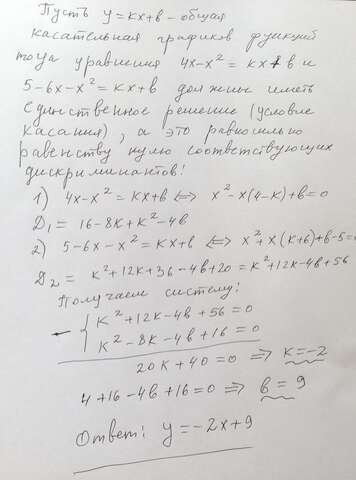 Пусть y = kx + b - общая
касательная графиков функций
тогда уравнения 4x-x² = kx+b и
5-6x-x² = kx+b должны иметь
единственное решение (условие
касания), а это равносильно
равенству нулю соответствующих
дискриминантов:
1) 4x-x² = kx+b ⟺ x²-x(4-k)+b=0
D₁ = 16-8k+k²-4b
2) 5-6x-x² = kx+b ⟺ x²+x(k+6)+b-5=0
D₂ = k²+12k+36-4b+20 = k²+12k-4b+56
Получаем систему:
- { k²+12k-4b+56=0
k²-8k-4b+16=0
20k+40=0 ⟹ k=-2
4+16-4b+16=0 ⟹ b=9
Ответ: y=-2x+9